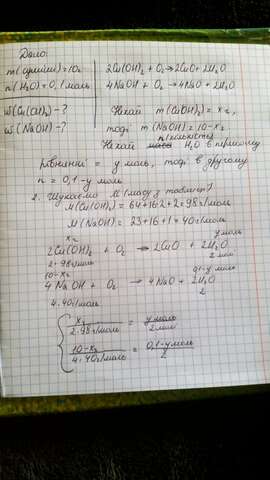 Дано:
m(суміші)=10г
n(H₂O)=0,1моль
W(Cu(OH)₂)-?
W(NaOH)-?
2Cu(OH)₂ + O₂ → 2CuO + 2H₂O
4NaOH + O₂ → 4NaO + 2H₂O
Нехай m(Cu(OH)₂) = xг,
тоді m(NaOH) = 10-xг
n(кількість)
Нехай H₂O в першому
рівнянні = y моль, тоді в другому
n = 0,1-y моль
2. Шукаємо M (масу з таблиці)
M(Cu(OH)₂) = 64+16·2+2=98г/моль
M(NaOH) = 23+16+1=40г/моль
xг y моль
2Cu(OH)₂ + O₂ → 2CuO + 2H₂O
2·98г/моль 2моль
10-xг 0,1-y моль
4NaOH + O₂ → 4NaO + 2H₂O
4·40г/моль 2
xг/2·98г/моль = y моль/2моль
10-xг/4·40г/моль = 0,1-y моль/2